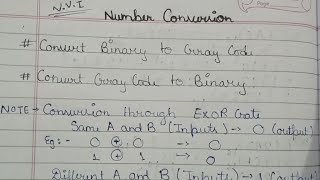 N.V.I
Number Conversion
# Convert Binary to Gray Code
# Convert Gray Code to Binary
NOTE → Conversion through ExOR Gate
Same A and B (Inputs) → 0 (output)
Eg:- 0 ⊕ 0 → 0
1 ⊕ 1 → 0
Different A and B (Inputs) → 1 (output)